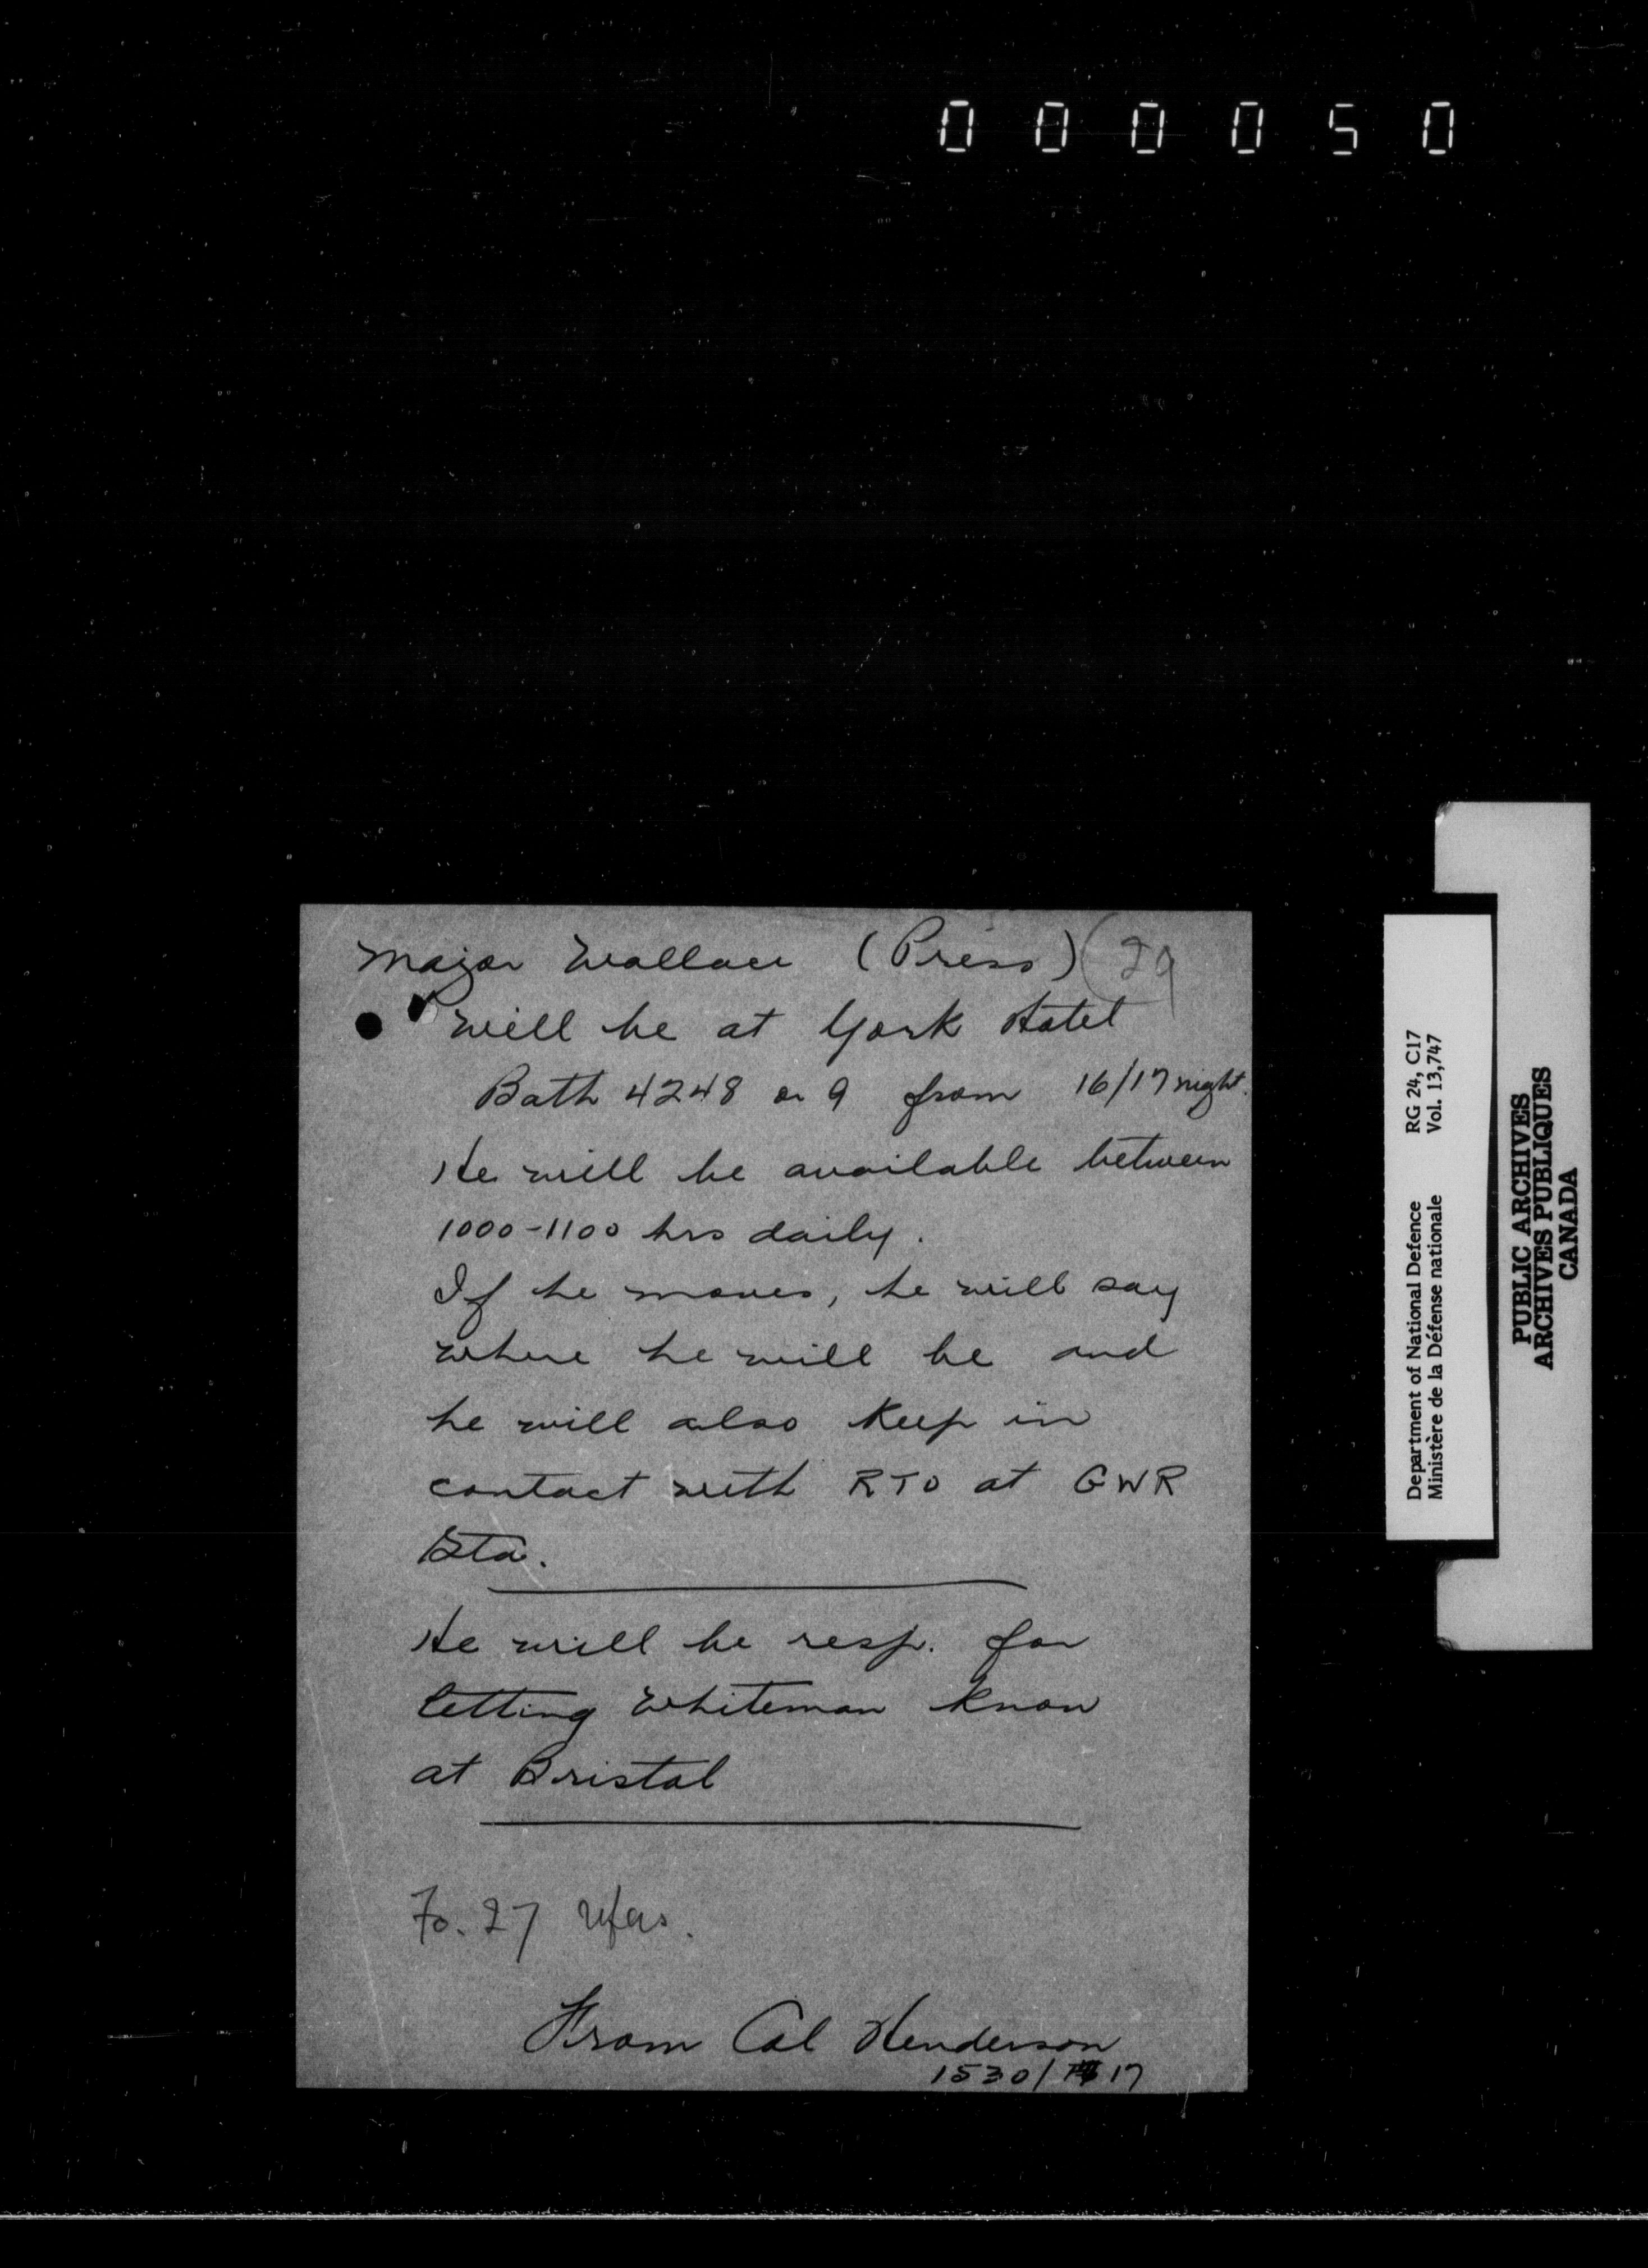 000050
Major Wallace (Press) 29
will be at York Hotel
Bath 4248 or 9 from 16/17 night.
He will be available between
1000-1100 hrs daily.
If he moves, he will say
where he will be and
he will also keep in
contact with RTO at GWR
Sta.
He will be resp. for
letting Whiteman know
at Bristol
Fo. 27 refers.
From Col Henderson
1530/17
Department of National Defence RG 24, C17
Ministère de la Défense nationale Vol. 13,747
PUBLIC ARCHIVES
ARCHIVES PUBLIQUES
CANADA